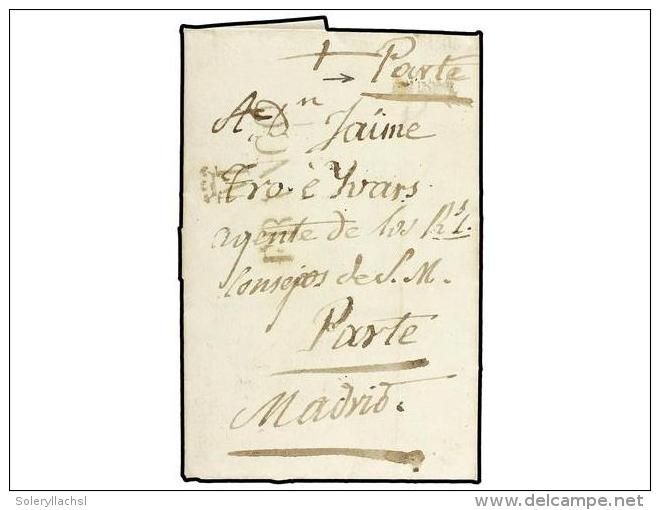 + Parte
A Dn Jaime
Tro. è Yvars.
agente de los Rs.
Consejos de S. M.
Parte
Madrid.
Soleryllachsl
©delcampe.net